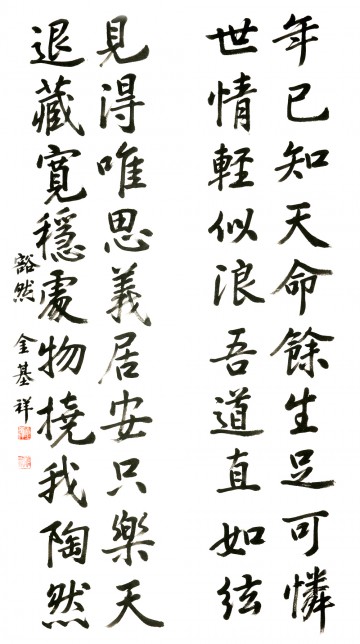 年已知天命餘生足可憐
世情輕似浪吾道直如絃
見得唯思義居安只樂天
退藏寬穩處物撓我陶然
豁然 金基祥